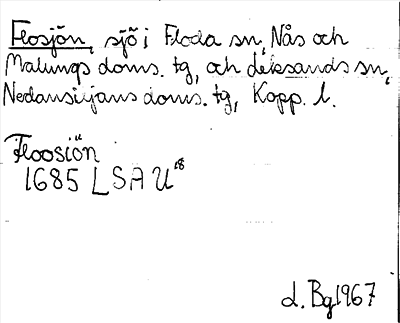 Flosjön, sjö i Floda sn, Nås och
Malungs doms. tg, och Leksands sn,
Nedansiljans doms. tg, Kopp. l.
Floosiön
1685 LSA U18
d. Bg 1967